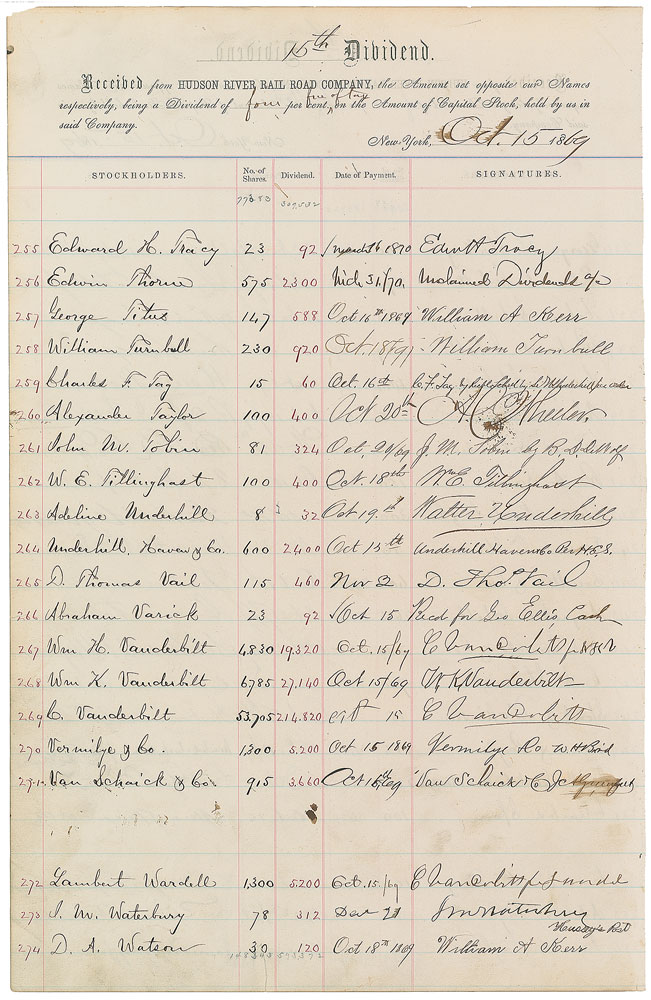 15th Dividend.
Received from HUDSON RIVER RAIL ROAD COMPANY, the Amount set opposite our Names
respectively, being a Dividend of four per cent, free of tax on the Amount of Capital Stock, held by us in
said Company.
New-York, Oct. 15 1869
STOCKHOLDERS. No. of Shares. Dividend. Date of Payment. SIGNATURES.
255 Edward H. Tracy 23 92 March 16 1870 Edw H Tracy
256 Edwin Thorne 575 2300 Mch 31/70. Unclaimed Dividends a/c
257 George Titus 147 588 Oct 16th 1869 William A Kerr
258 William Turnbull 230 920 Oct. 18/69 William Turnbull
259 Charles F. Tag 15 60 Oct. 16th C. F. Tag by
260 Alexander Taylor 100 400 Oct 20th Wheeler
261 John M. Tobin 81 324 Oct, 20/69 J. M. Tobin by B. D.
262 W. E. Tillinghast 100 400 Oct. 18th Wm E. Tillinghast
263 Adeline Underhill 8 32 Oct 19th Walter Underhill
264 Underhill, Haven & Co. 600 2,400 Oct 15th Underhill Haven & Co Per H.E.S.
265 D. Thomas Vail 115 460 Nov 2 D. Thos. Vail
266 Abraham Varick 23 92 Oct 15 Recd for Geo Ellis, Cash
267 Wm H. Vanderbilt 4,830 19,320 Oct. 15/69 C Vanderbilt for WHV
268 Wm K. Vanderbilt 6,785 27,140 Oct 15/69 W K Vanderbilt
269 C. Vanderbilt 53,705 214,820 Oct 15 C Vanderbilt
270 Vermilye & Co. 1,300 5,200 Oct 15 1869 Vermilye & Co W. H Bird
271 Van Schaick & Co. 915 3,660 Oct 15th/69 Van Schaick & Co
272 Lambert Wardell 1,300 5,200 Oct. 15/69 C Vanderbilt for L Wardell
273 J. M. Waterbury 78 312 Dec 21 J M Waterbury
274 D. A. Watson 30 120 Oct 18th 1869 William A Kerr